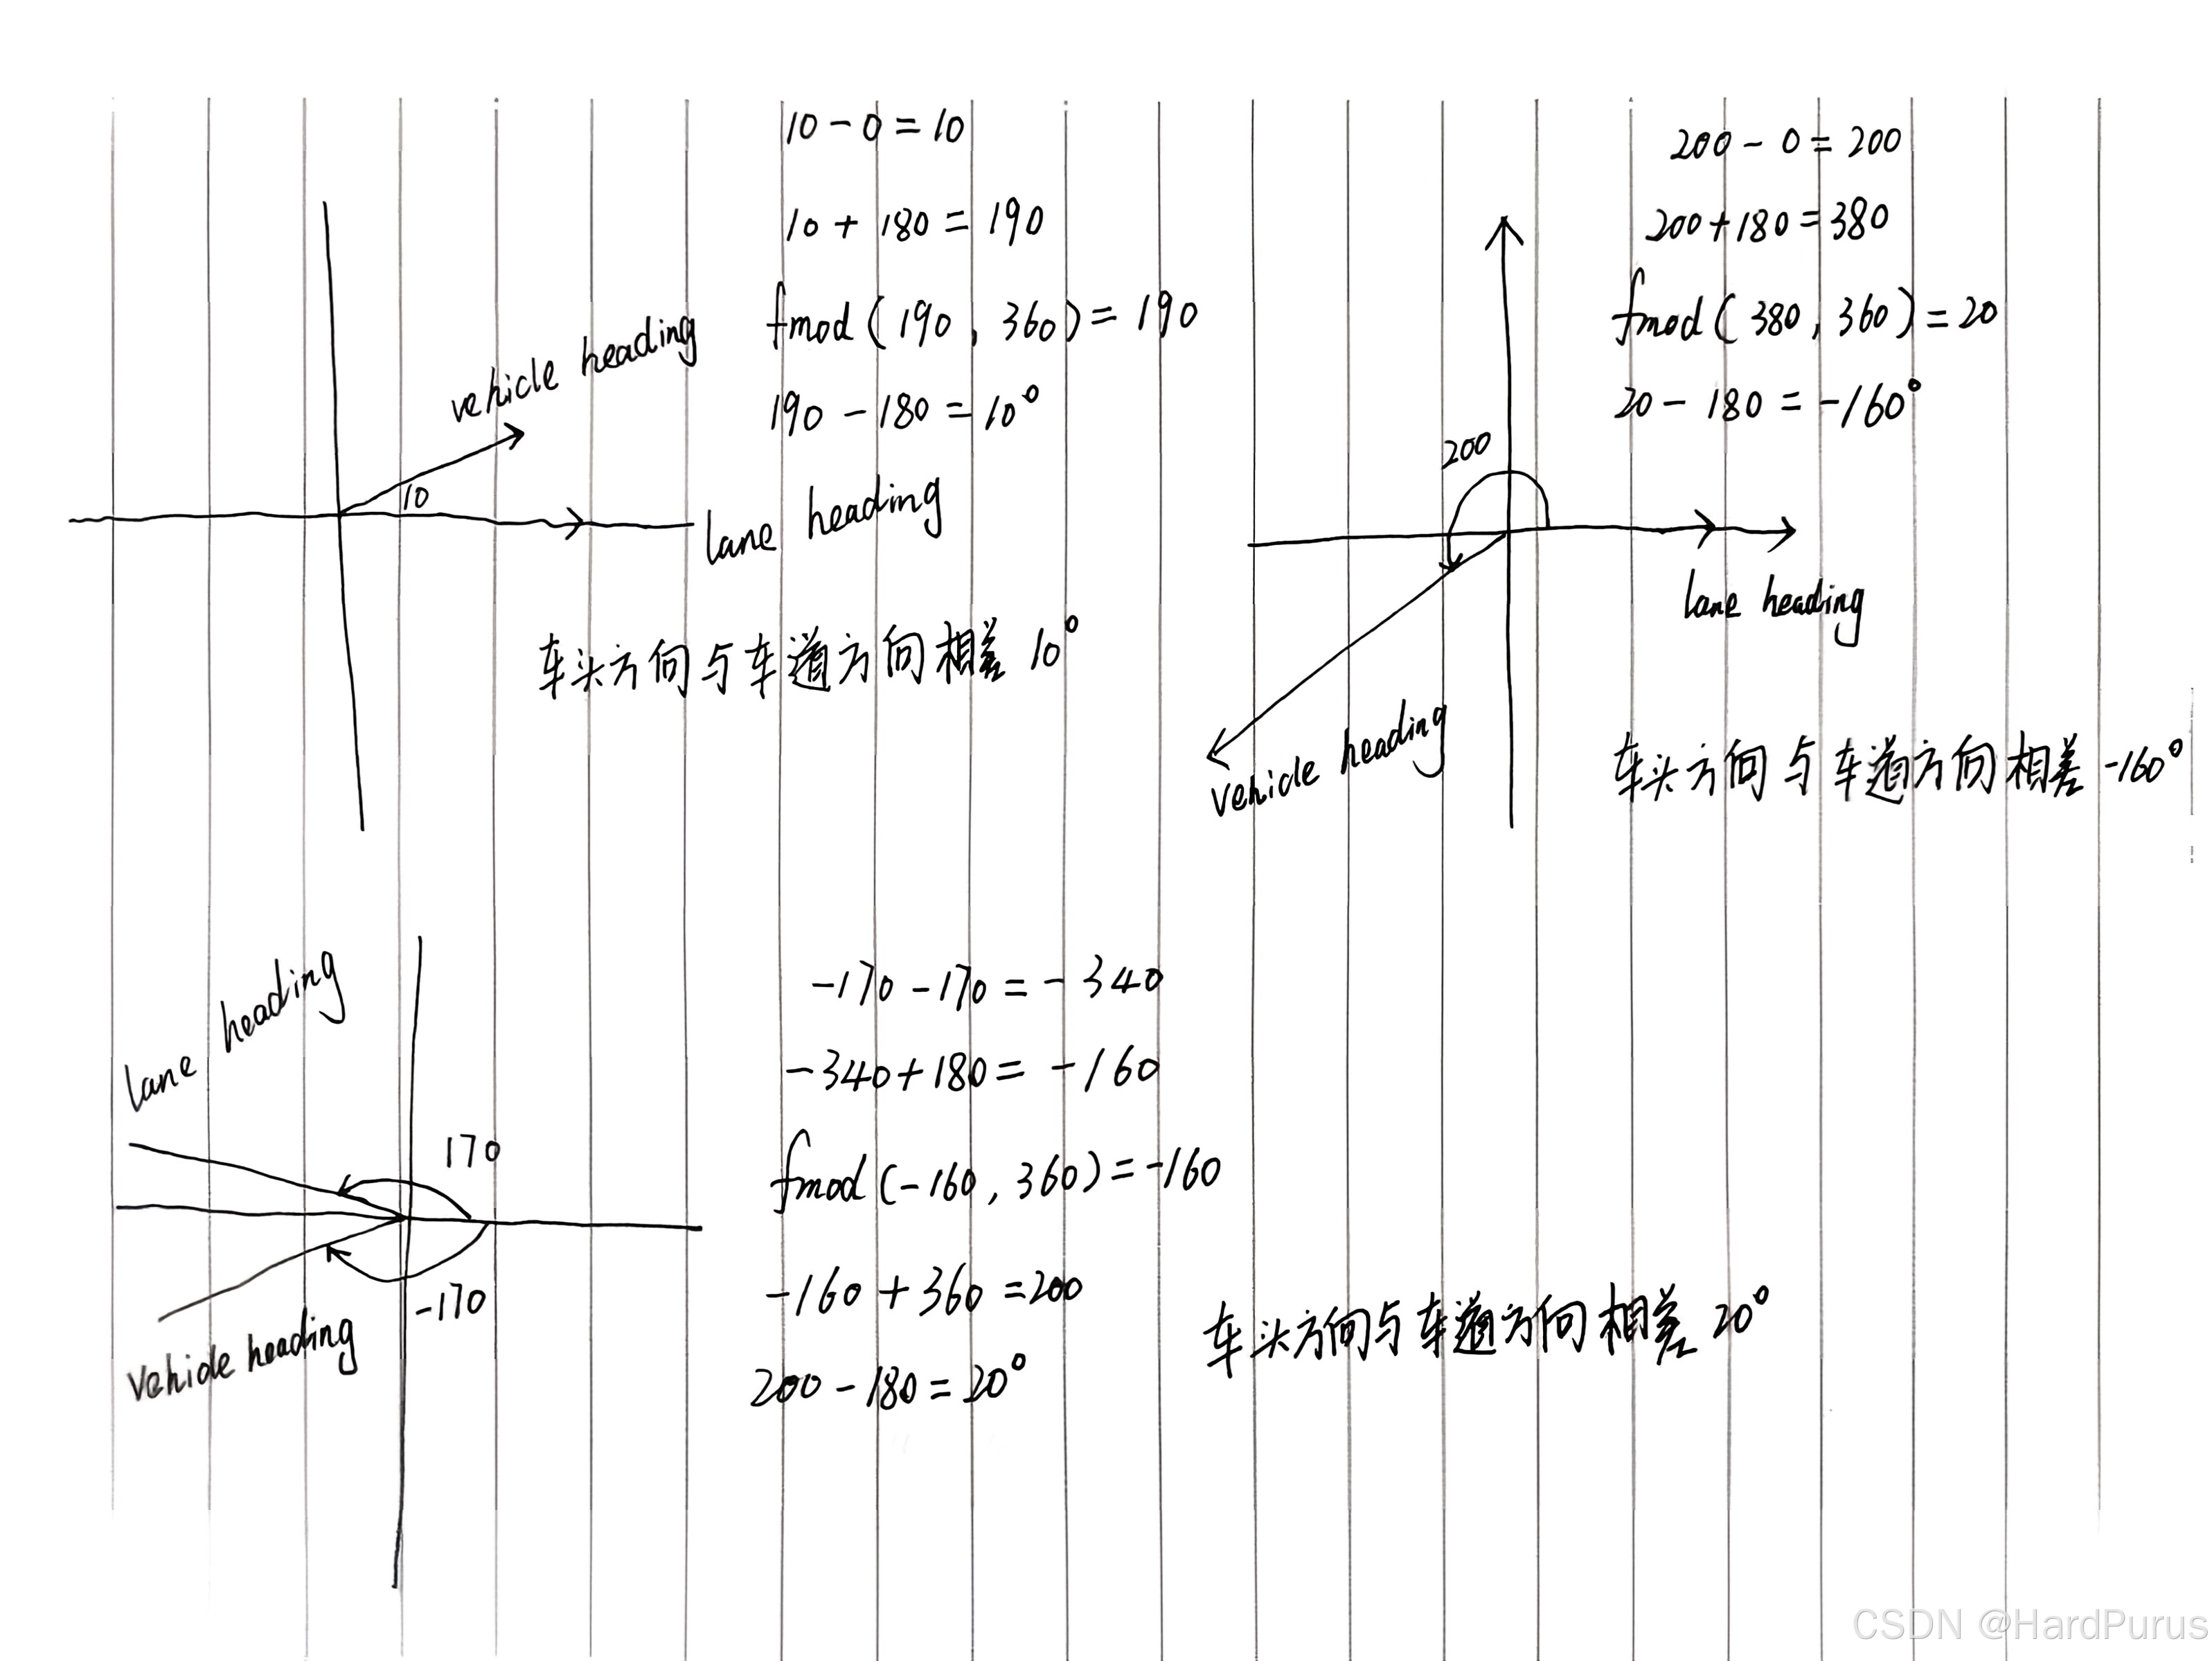 10 - 0 = 10
10 + 180 = 190
fmod ( 190 , 360 ) = 190
190 - 180 = 10°
vehicle heading
10
lane heading
车头方向与车道方向相差 10°
200 - 0 = 200
200 + 180 = 380
fmod ( 380 , 360 ) = 20
20 - 180 = -160°
200
lane heading
vehicle heading
车头方向与车道方向相差 -160°
lane heading
170
-170
vehicle heading
-170 - 170 = - 340
-340 + 180 = -160
fmod ( -160 , 360 ) = -160
-160 + 360 = 200
200 - 180 = 20°
车头方向与车道方向相差 20°
CSDN @HardPurus